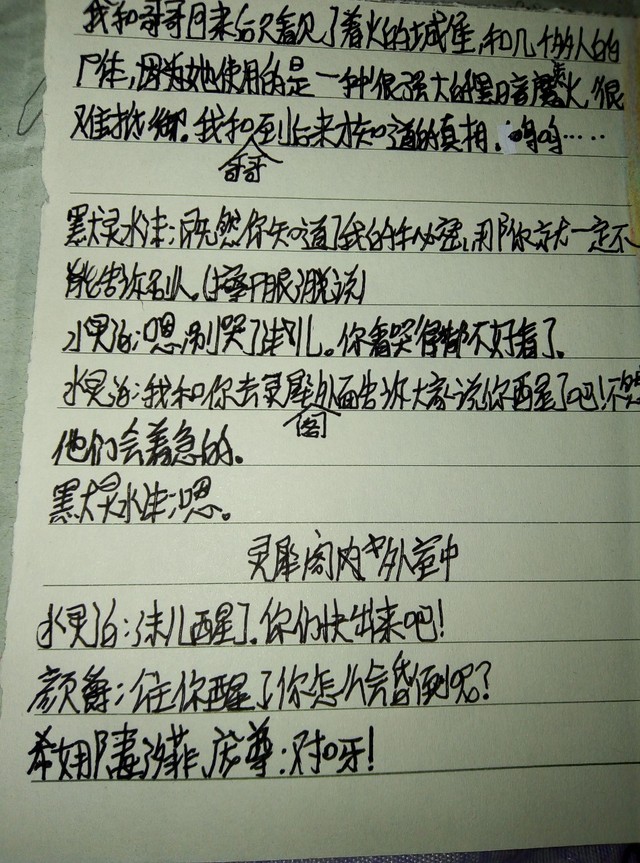 我和哥哥回来后只看见了着火的城堡,和几个多人的
尸体,因为她使用的是一种很强大的黑暗魔火,很
难抵御。我和哥哥到后来才知道的真相.呜呜……
默灵水沫:既然你知道了我的年秘密,那你就一定不
能告诉别人。(擦眼泪说)
水灵泊:嗯,别哭了沫儿。你看哭得都不好看了。
水灵泊:我和你去灵犀阁外面告诉大家说你醒了吧!不然
他们会着急的。
默灵水沫:嗯。
灵犀阁内中外室中
水灵泊:沫儿醒了.你们快出来吧!
颜爵:住你醒了你怎么会昏倒呢?
希娜毒汐菲庞尊:对呀!